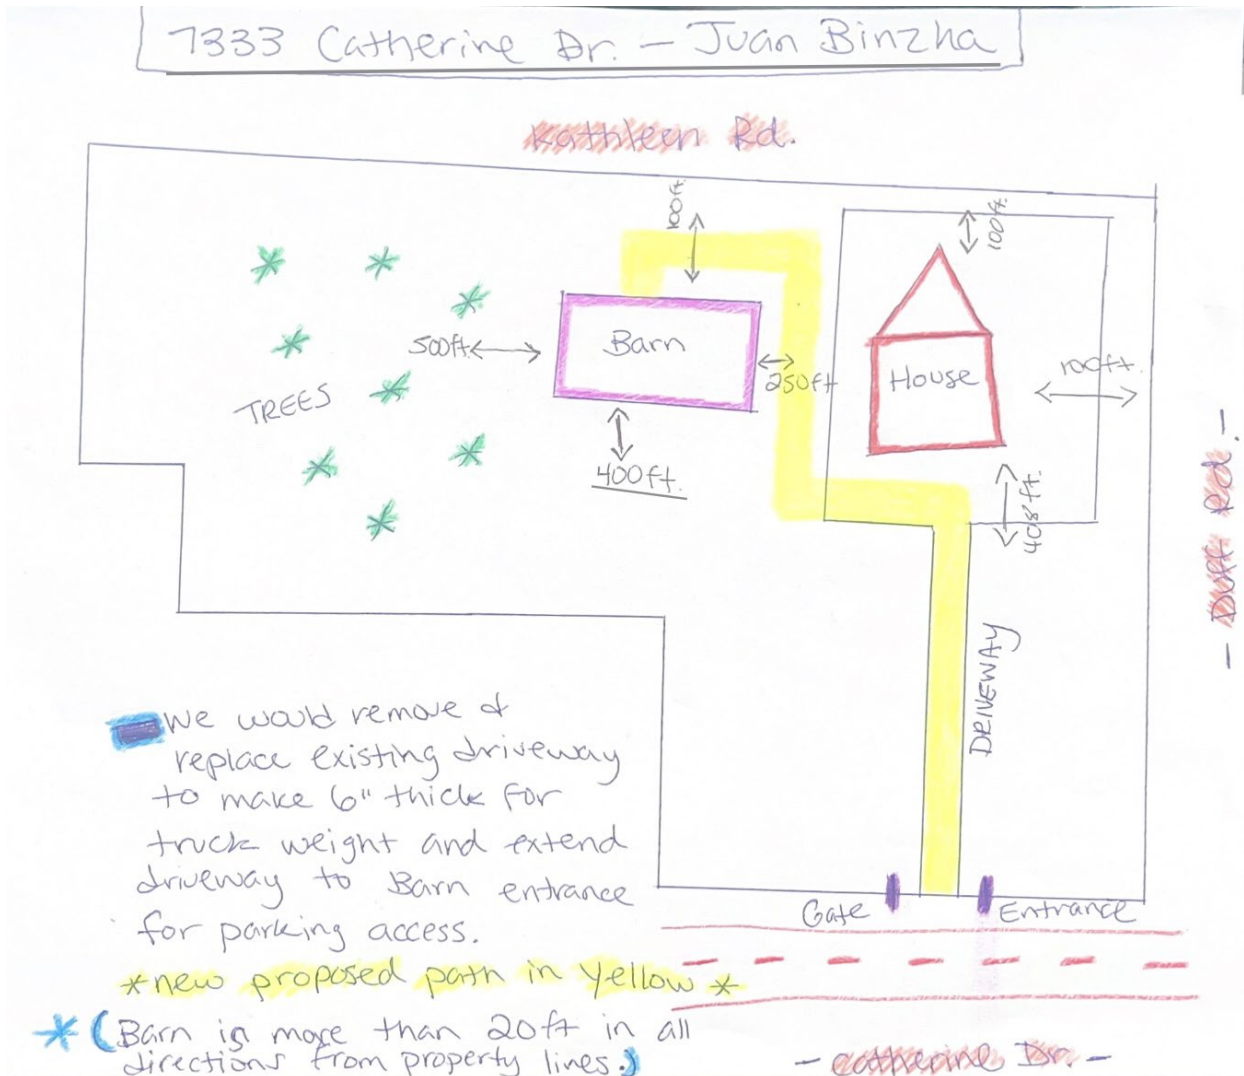 7333 Catherine Dr. - Juan Binzha
Kathleen Rd.
100ft.
100ft.
500ft.
Barn
250ft
House
100ft.
TREES
400ft.
408ft.
- Duff Rd. -
DRIVEWAY
We would remove &
replace existing driveway
to make 6" thick for
truck weight and extend
driveway to Barn entrance
for parking access.
Gate
Entrance
*new proposed path in yellow*
*(Barn is more than 20ft in all
directions from property lines.)
- Catherine Dr. -